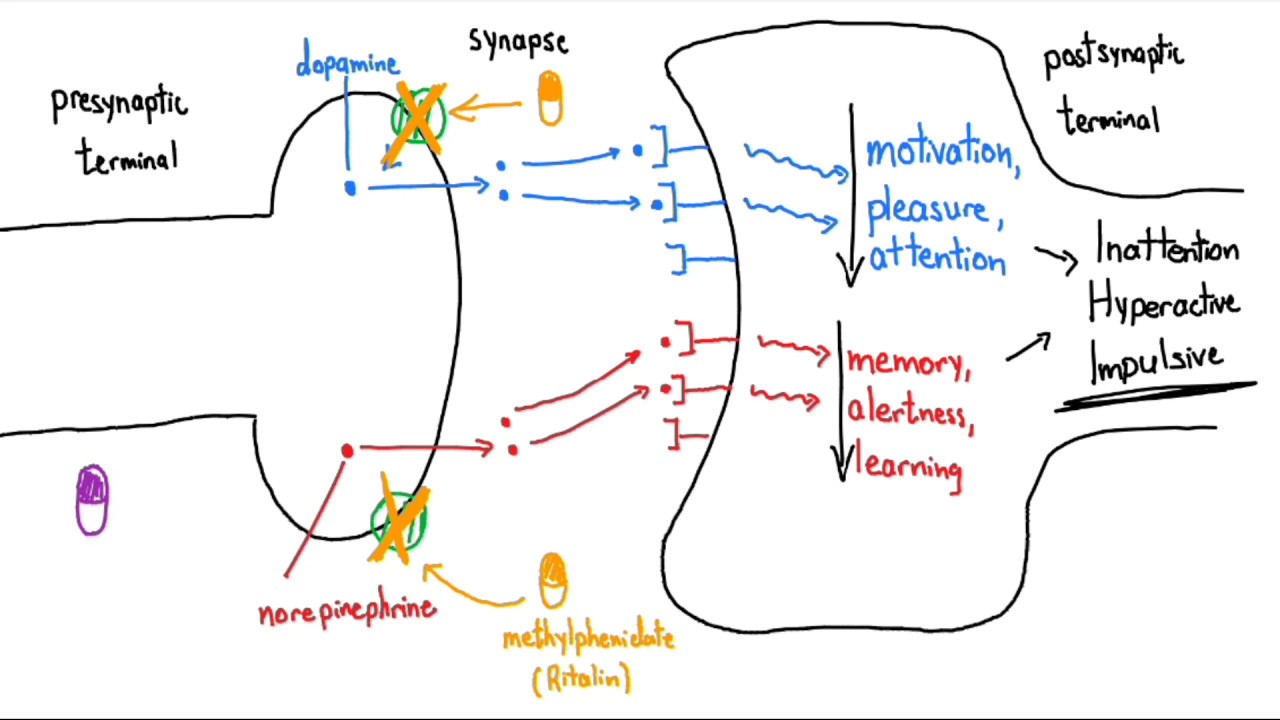 presynaptic
terminal
dopamine
synapse
postsynaptic
terminal
motivation,
pleasure,
attention
Inattention
Hyperactive
Impulsive
memory,
alertness,
learning
norepinephrine
methylphenidate
(Ritalin)